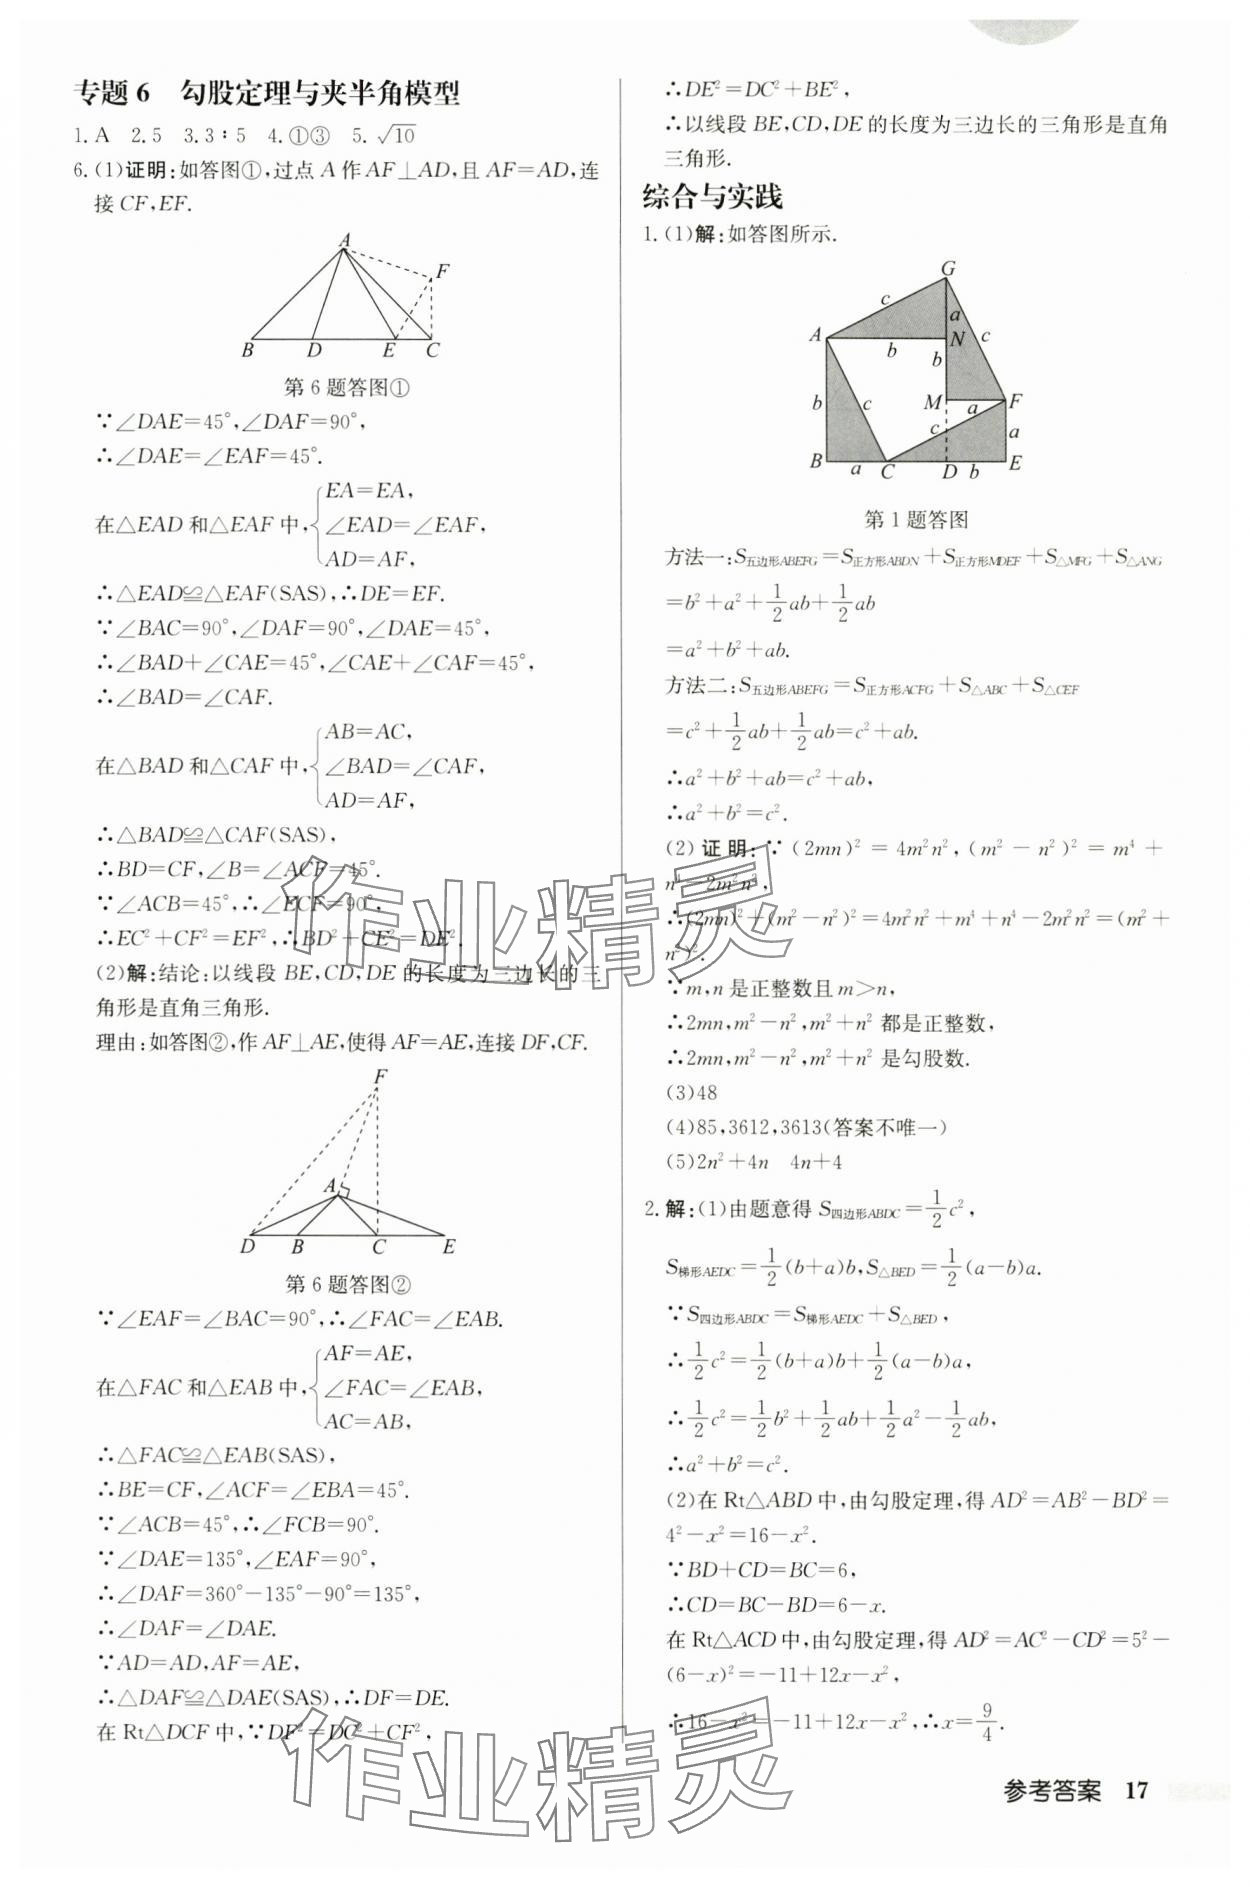 专题6 勾股定理与夹半角模型
1.A 2.5 3.3∶5 4.①③ 5.√10
6.(1)证明:如答图①,过点A作AF⊥AD,且AF=AD,连
接CF,EF.
A
F
B D E C
第6题答图①
∵∠DAE=45°,∠DAF=90°,
∴∠DAE=∠EAF=45°.
EA=EA,
在△EAD和△EAF中,{∠EAD=∠EAF,
AD=AF,
∴△EAD≌△EAF(SAS),∴DE=EF.
∵∠BAC=90°,∠DAF=90°,∠DAE=45°,
∴∠BAD+∠CAE=45°,∠CAE+∠CAF=45°,
∴∠BAD=∠CAF.
AB=AC,
在△BAD和△CAF中,{∠BAD=∠CAF,
AD=AF,
∴△BAD≌△CAF(SAS),
∴BD=CF,∠B=∠ACF=45°.
∵∠ACB=45°,∴∠ECF=90°,
∴EC²+CF²=EF²,∴BD²+CE²=DE².
(2)解:结论:以线段BE,CD,DE的长度为三边长的三
角形是直角三角形.
理由:如答图②,作AF⊥AE,使得AF=AE,连接DF,CF.
F
A
D B C E
第6题答图②
∵∠EAF=∠BAC=90°,∴∠FAC=∠EAB.
AF=AE,
在△FAC和△EAB中,{∠FAC=∠EAB,
AC=AB,
∴△FAC≌△EAB(SAS),
∴BE=CF,∠ACF=∠EBA=45°.
∵∠ACB=45°,∴∠FCB=90°.
∵∠DAE=135°,∠EAF=90°,
∴∠DAF=360°-135°-90°=135°,
∴∠DAF=∠DAE.
∵AD=AD,AF=AE,
∴△DAF≌△DAE(SAS),∴DF=DE.
在Rt△DCF中,∵DF²=DC²+CF²,
∴DE²=DC²+BE²,
∴以线段BE,CD,DE的长度为三边长的三角形是直角
三角形.
综合与实践
1.(1)解:如答图所示.
G
c a
A N c
b b
b c M a F
c a
B a C D b E
第1题答图
方法一:S五边形ABEFG=S正方形ABDN+S正方形MDEF+S△MFG+S△ANG
=b²+a²+1/2ab+1/2ab
=a²+b²+ab.
方法二:S五边形ABEFG=S正方形ACFG+S△ABC+S△CEF
=c²+1/2ab+1/2ab=c²+ab.
∴a²+b²+ab=c²+ab,
∴a²+b²=c².
(2)证明:∵(2mn)²=4m²n²,(m²-n²)²=m⁴+
n⁴-2m²n²,
∴(2mn)²+(m²-n²)²=4m²n²+m⁴+n⁴-2m²n²=(m²+
n²)².
∵m,n是正整数且m>n,
∴2mn,m²-n²,m²+n²都是正整数,
∴2mn,m²-n²,m²+n²是勾股数.
(3)48
(4)85,3612,3613(答案不唯一)
(5)2n²+4n 4n+4
2.解:(1)由题意得S四边形ABDC=1/2c²,
S梯形AEDC=1/2(b+a)b,S△BED=1/2(a-b)a.
∵S四边形ABDC=S梯形AEDC+S△BED,
∴1/2c²=1/2(b+a)b+1/2(a-b)a,
∴1/2c²=1/2b²+1/2ab+1/2a²-1/2ab,
∴a²+b²=c².
(2)在Rt△ABD中,由勾股定理,得AD²=AB²-BD²=
4²-x²=16-x².
∵BD+CD=BC=6,
∴CD=BC-BD=6-x.
在Rt△ACD中,由勾股定理,得AD²=AC²-CD²=5²-
(6-x)²=-11+12x-x²,
∴16-x²=-11+12x-x²,∴x=9/4.
作业精灵
作业精灵
参考答案 17